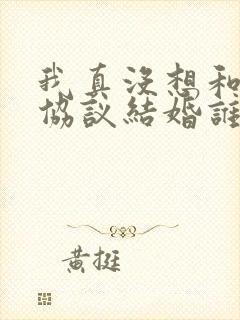 我真沒想和
協議結婚誰
黃挺